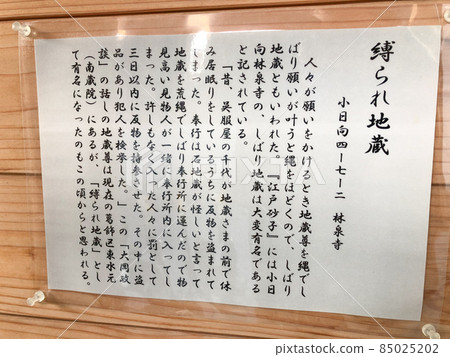 縛られ地蔵
小日向四ー七ー二　林泉寺
人々が願いをかけるとき地蔵尊を縄でし
ばり願いが叶うと縄をほどくので、しばり
地蔵ともいわれた。『江戸砂子』には小日
向林泉寺の、しばり地蔵は大変有名である
と記されている。
「昔、呉服屋の手代が地蔵さまの前で休
み居眠りをしているうちに反物を盗まれて
しまった。奉行は石地蔵が怪しいと言って
地蔵を荒縄でしばり奉行所に運んだので物
見高い見物人が一緒に奉行所内に入ってし
まった。許しもなく入った人々に罰として
三日以内に反物を持参させた。その中に盗
品があり犯人を検挙した。」この「大岡政
談」の話しの地蔵尊は現在の葛飾区東水元
（南蔵院）にあるが、「縛られ地蔵」とし
て有名になったのもこの頃からと思われる。
85025202